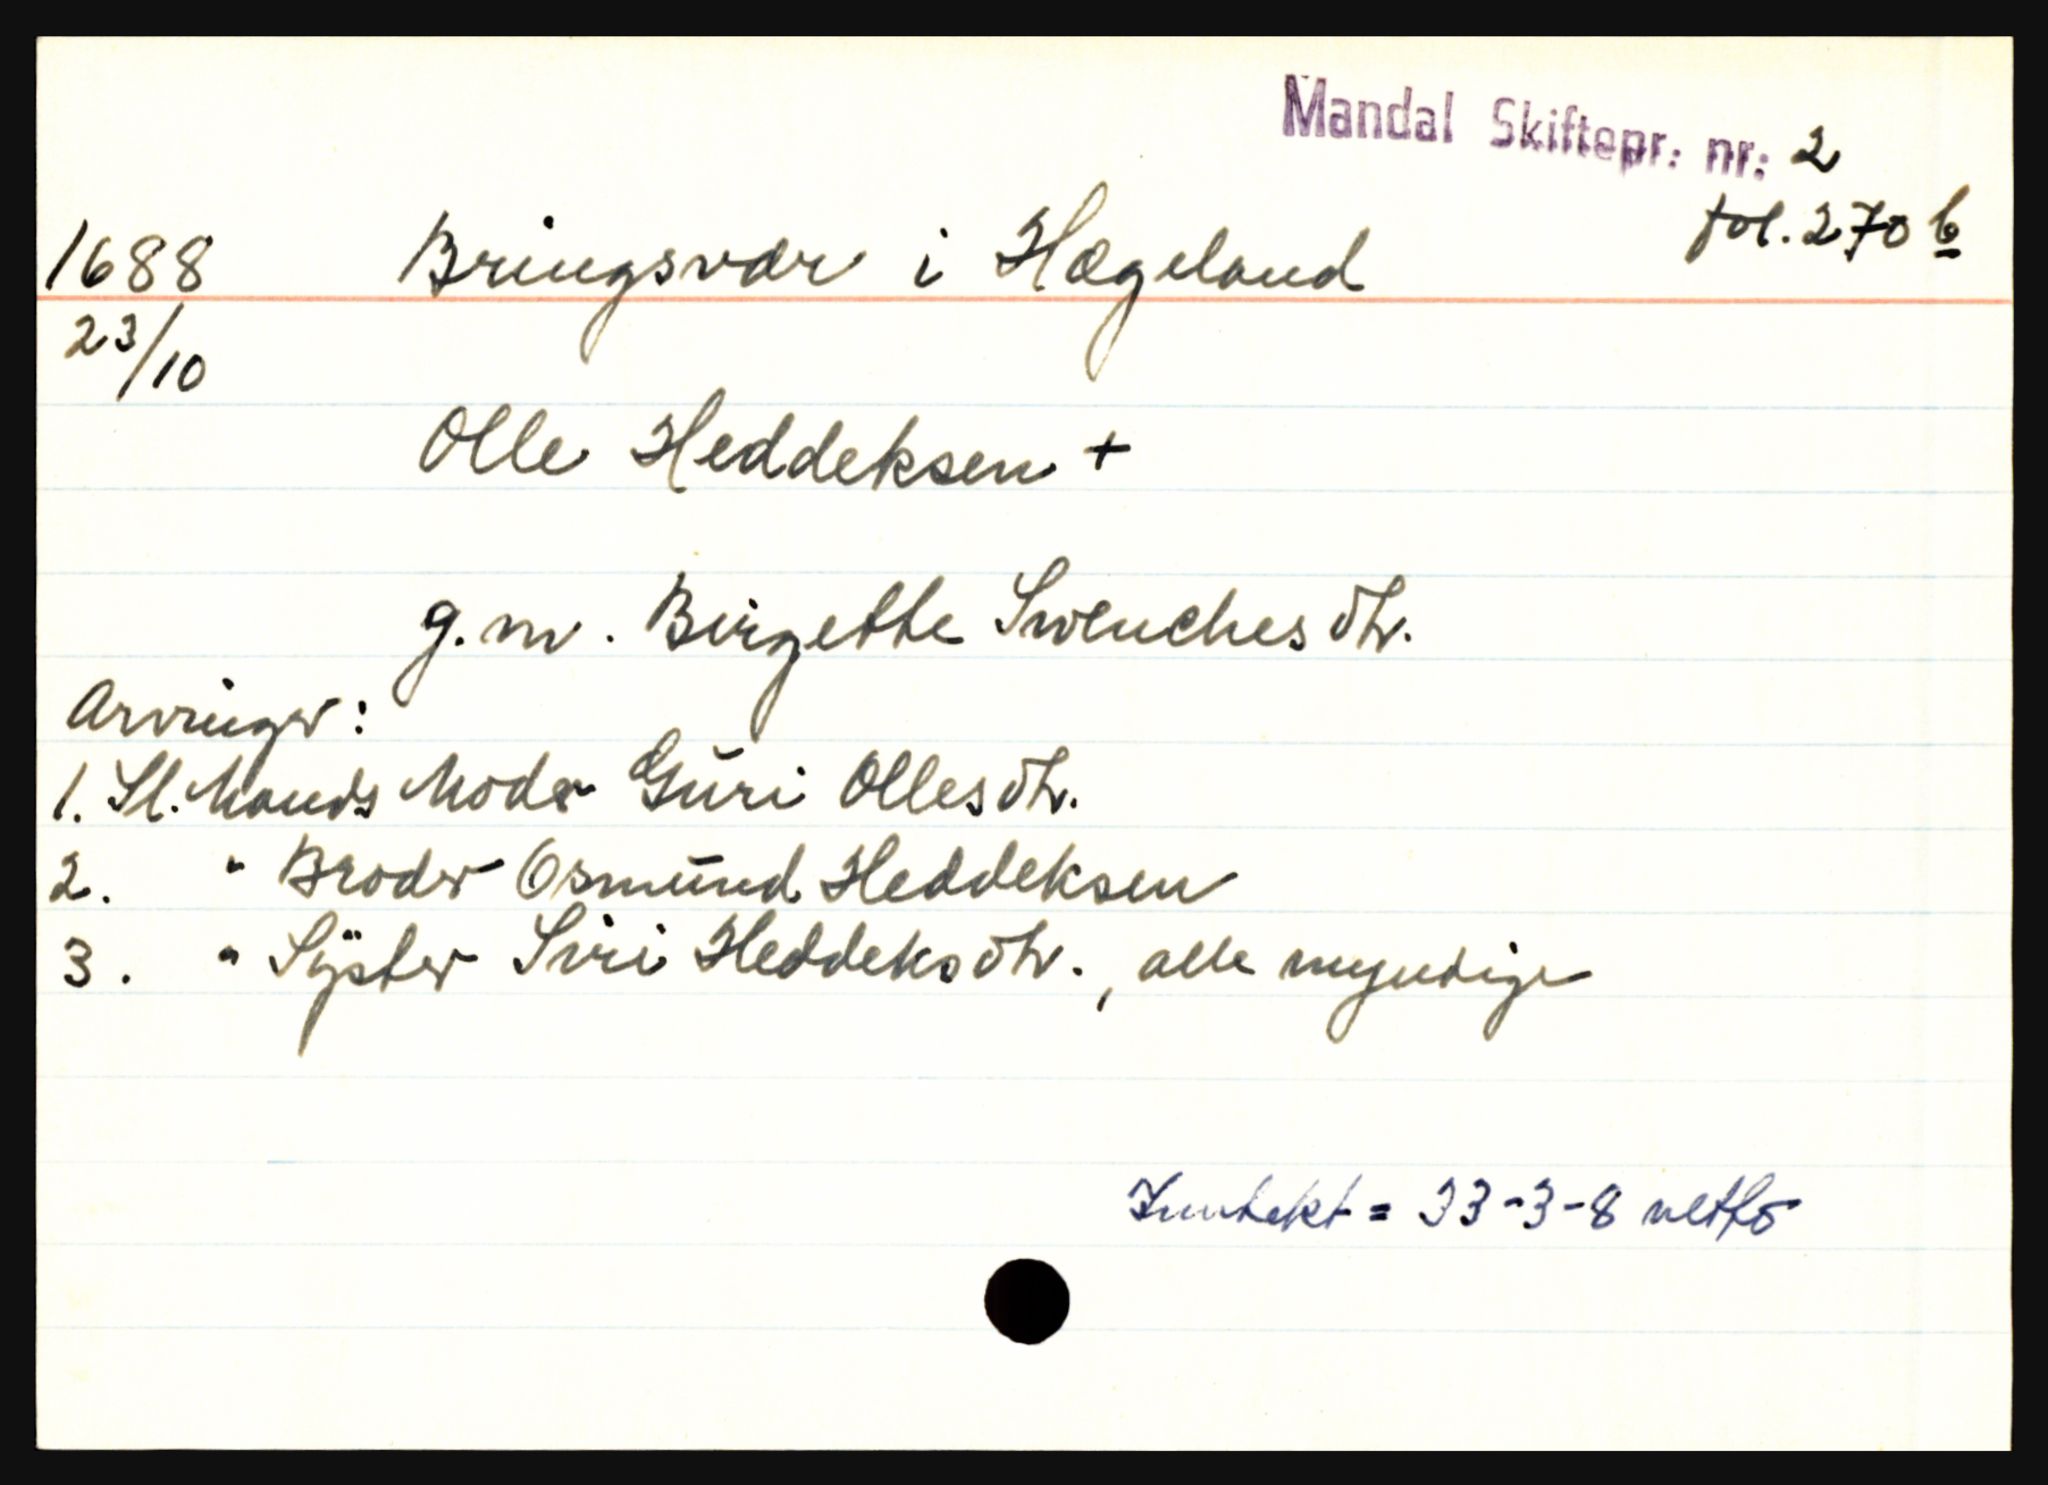 Mandal Skiftepr. nr: 2
fol. 270 b
1688 Bringsvær i Hægeland
23/10
Olle Heddeksen +
g.m. Birgette Swenchesdtr.
Arvinger:
1. Sl. Mands Moder Guri Ollesdtr.
2. " Broder Osmund Heddeksen
3. " Syster Siri Heddeksdtr., alle myndige
= 33-3-8 netto